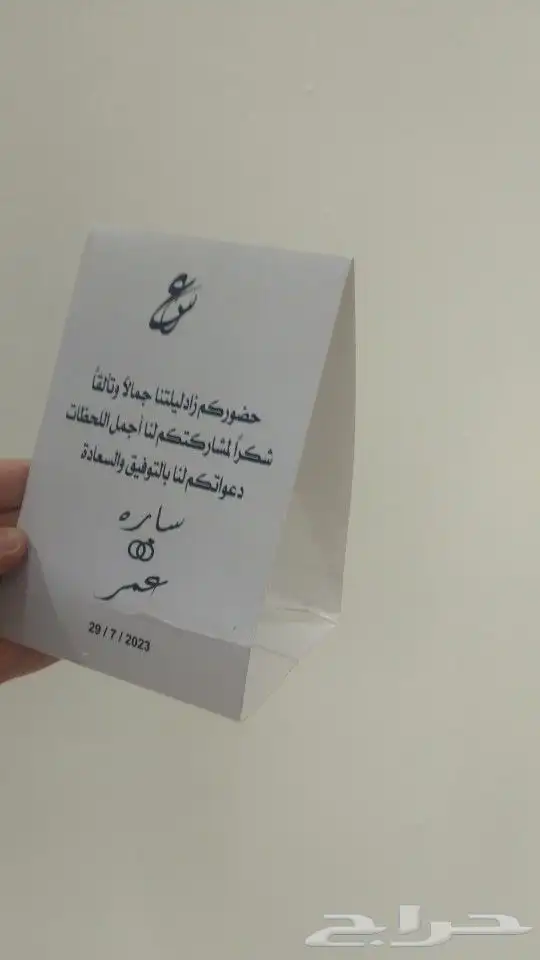 س ع
حضوركم زاد ليلتنا جمالاً وتألقاً
شكراً لمشاركتكم لنا أجمل اللحظات
دعواتكم لنا بالتوفيق والسعادة
ساره
عمر
29 / 7 / 2023
حراج